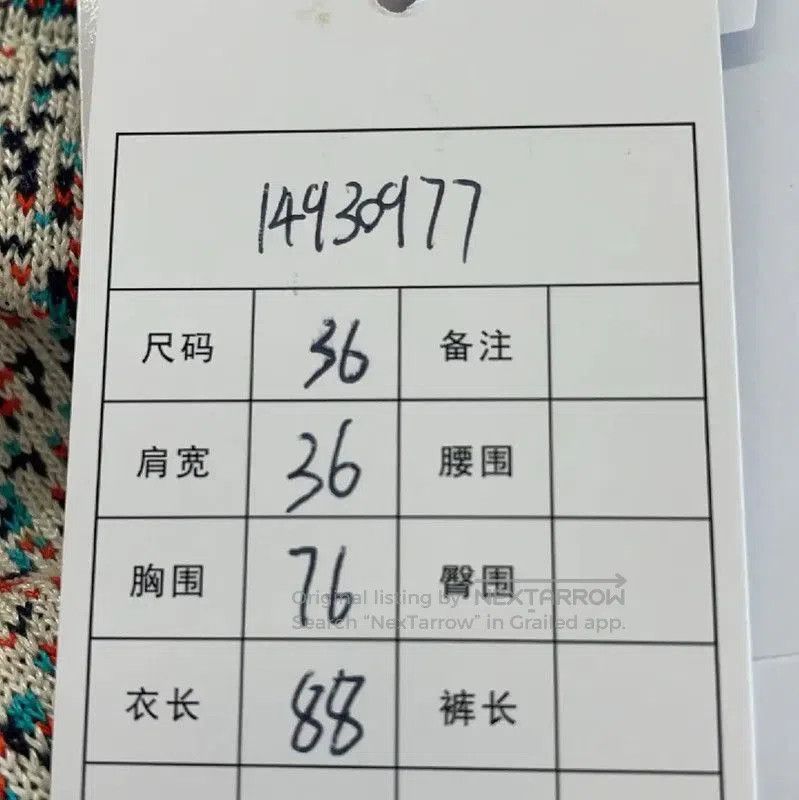 14930977
尺码 36 备注
肩宽 36 腰围
胸围 76 臀围
Original listing by NEXTARROW
Search "NexTarrow" in Grailed app.
衣长 88 裤长